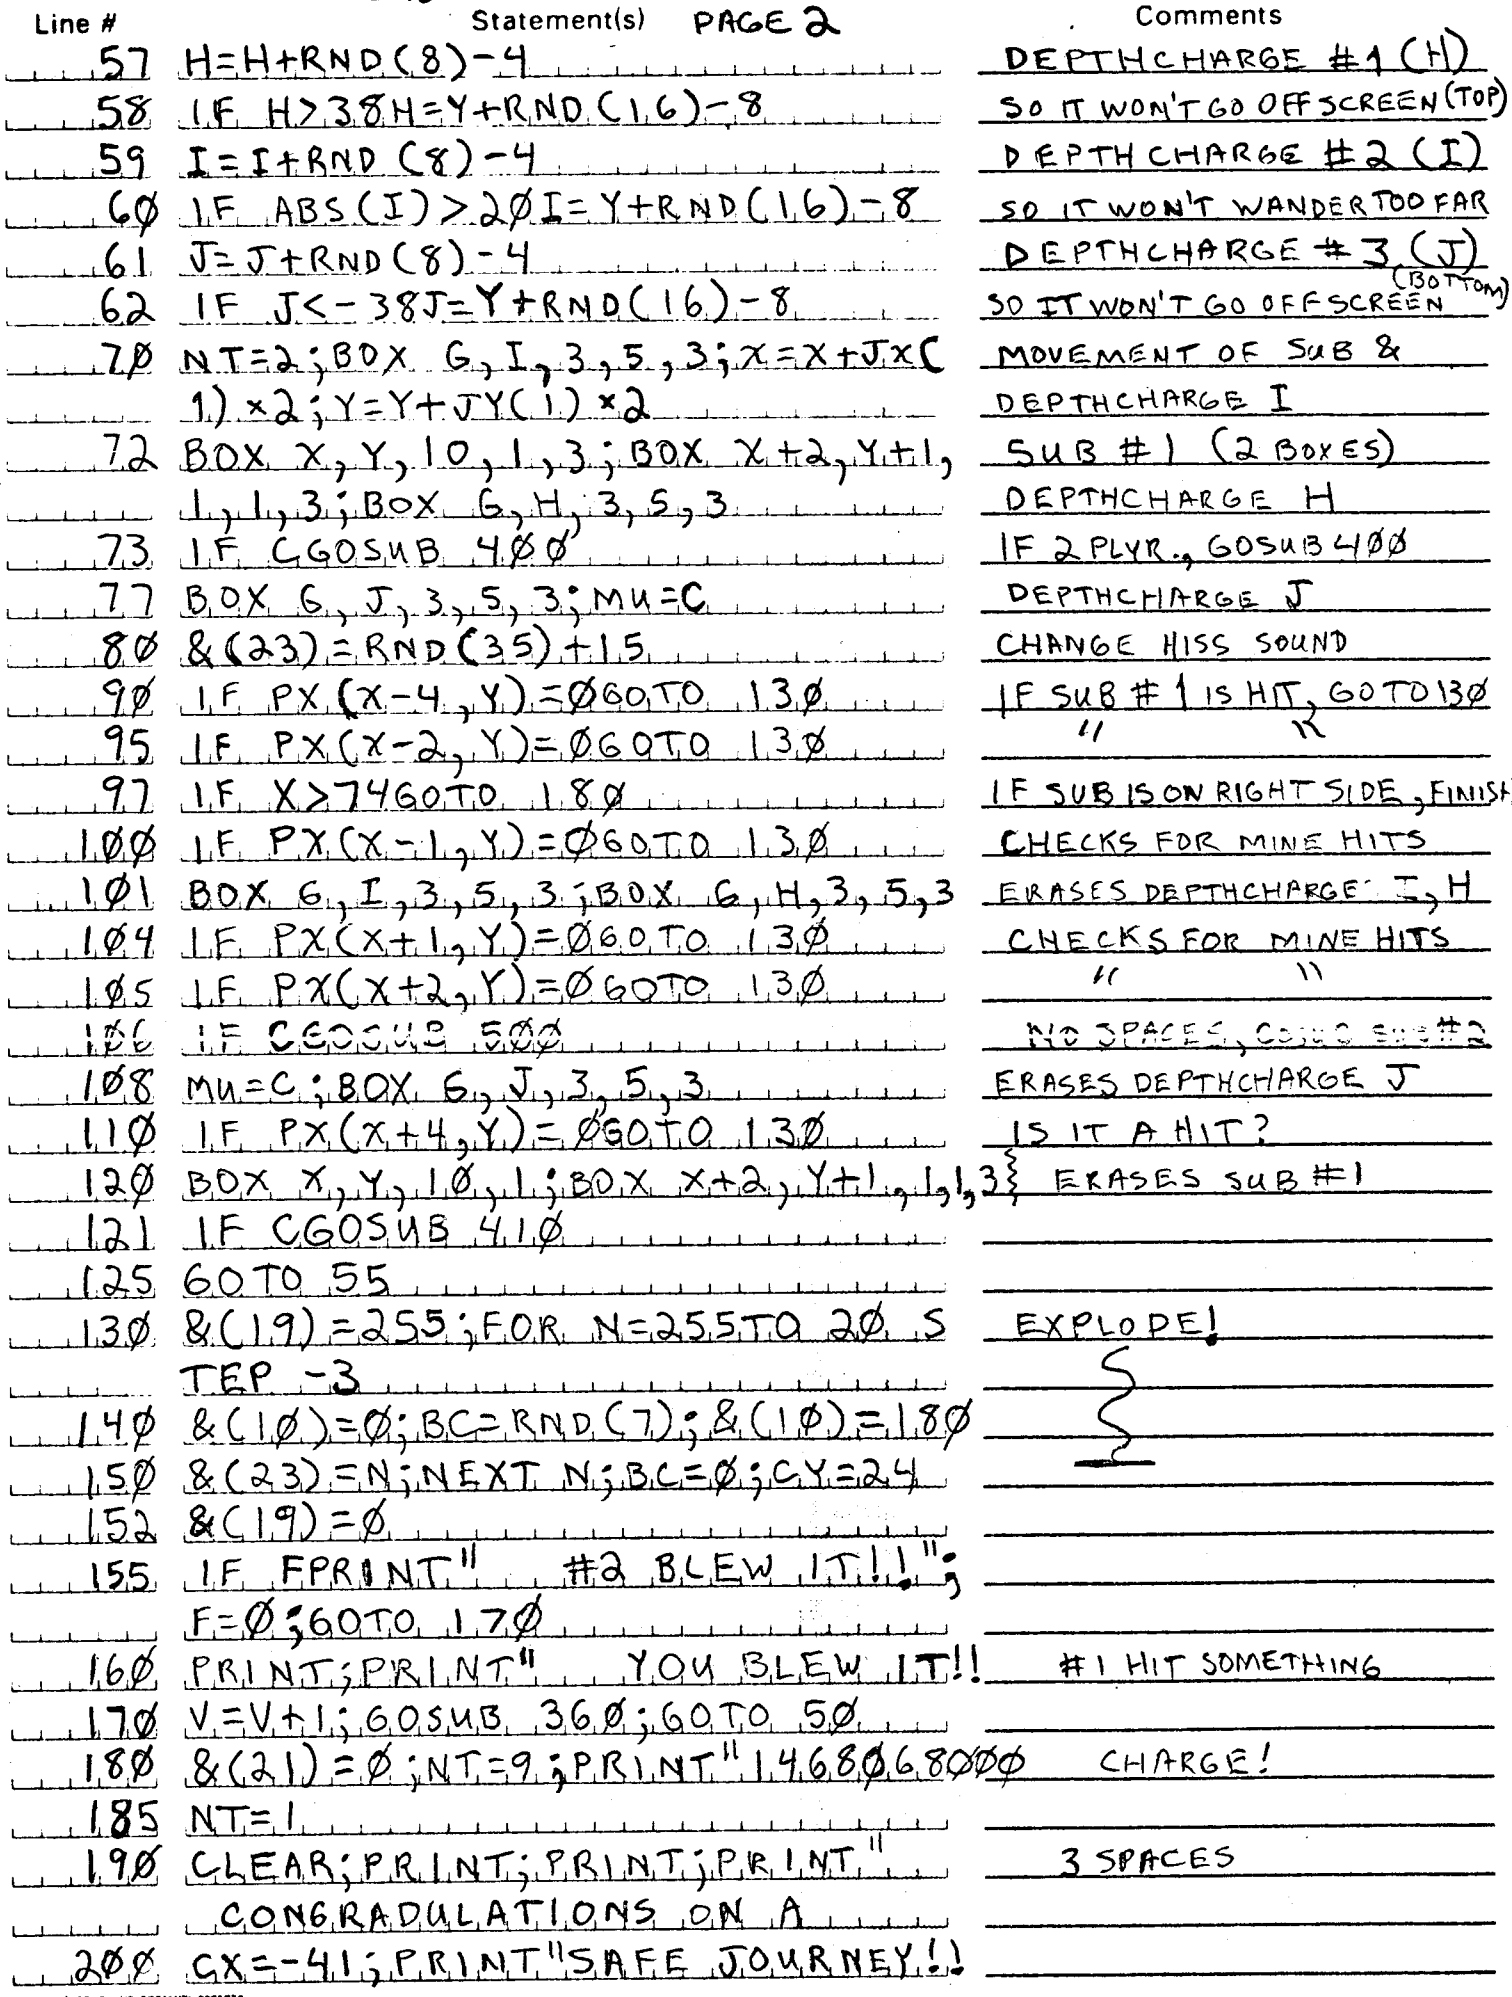 Line # Statement(s) PAGE 2 Comments
57 H=H+RND(8)-4 DEPTHCHARGE #1 (H)
58 IF H>38H=Y+RND(16)-8 SO IT WON'T GO OFF SCREEN (TOP)
59 I=I+RND (8)-4 DEPTH CHARGE #2 (I)
6Ø IF ABS(I)>2ØI=Y+RND(16)-8 SO IT WON'T WANDER TOO FAR
61 J=J+RND(8)-4 DEPTHCHARGE #3 (J)
62 IF J<-38J=Y+RND(16)-8 SO IT WON'T GO OFF SCREEN (BOTTOM)
7Ø NT=2;BOX G,I,3,5,3;X=X+JX( MOVEMENT OF SUB &
1)×2;Y=Y+JY(1)×2 DEPTHCHARGE I
72 BOX X,Y,10,1,3;BOX X+2,Y+1, SUB #1 (2 BOXES)
1,1,3;BOX G,H,3,5,3 DEPTHCHARGE H
73 IF CGOSUB 4ØØ IF 2 PLYR., GOSUB 4ØØ
77 BOX G,J,3,5,3;MU=C DEPTHCHARGE J
8Ø &(23)=RND(35)+15 CHANGE HISS SOUND
9Ø IF PX(X-4,Y)=ØGOTO 13Ø IF SUB #1 IS HIT, GOTO 13Ø
95 IF PX(X-2,Y)=ØGOTO 13Ø " "
97 IF X>74GOTO 18Ø IF SUB IS ON RIGHT SIDE, FINISH
1ØØ IF PX(X-1,Y)=ØGOTO 13Ø CHECKS FOR MINE HITS
1Ø1 BOX G,I,3,5,3;BOX G,H,3,5,3 ERASES DEPTHCHARGE I,H
1Ø4 IF PX(X+1,Y)=ØGOTO 13Ø CHECKS FOR MINE HITS
1Ø5 IF PX(X+2,Y)=ØGOTO 13Ø " "
1Ø6 IF CGOSUB 5ØØ NO SPACES,
1Ø8 MU=C;BOX G,J,3,5,3 ERASES DEPTHCHARGE J
11Ø IF PX(X+4,Y)=ØGOTO 13Ø IS IT A HIT?
12Ø BOX X,Y,1Ø,1;BOX X+2,Y+1,1,1,3 ERASES SUB #1
121 IF CGOSUB 41Ø
125 GOTO 55
13Ø &(19)=255;FOR N=255TO 2Ø S EXPLODE!
TEP -3
14Ø &(1Ø)=Ø;BC=RND(7);&(1Ø)=18Ø
15Ø &(23)=N;NEXT N;BC=Ø;CY=24
152 &(19)=Ø
155 IF FPRINT" #2 BLEW IT!!";
F=Ø;GOTO 17Ø
16Ø PRINT;PRINT" YOU BLEW IT!! #1 HIT SOMETHING
17Ø V=V+1;GOSUB 36Ø;GOTO 5Ø
18Ø &(21)=Ø;NT=9;PRINT"1468Ø68ØØØ CHARGE!
185 NT=1
19Ø CLEAR;PRINT;PRINT;PRINT" 3 SPACES
CONGRADULATIONS ON A
2ØØ CX=-41;PRINT"SAFE JOURNEY!!